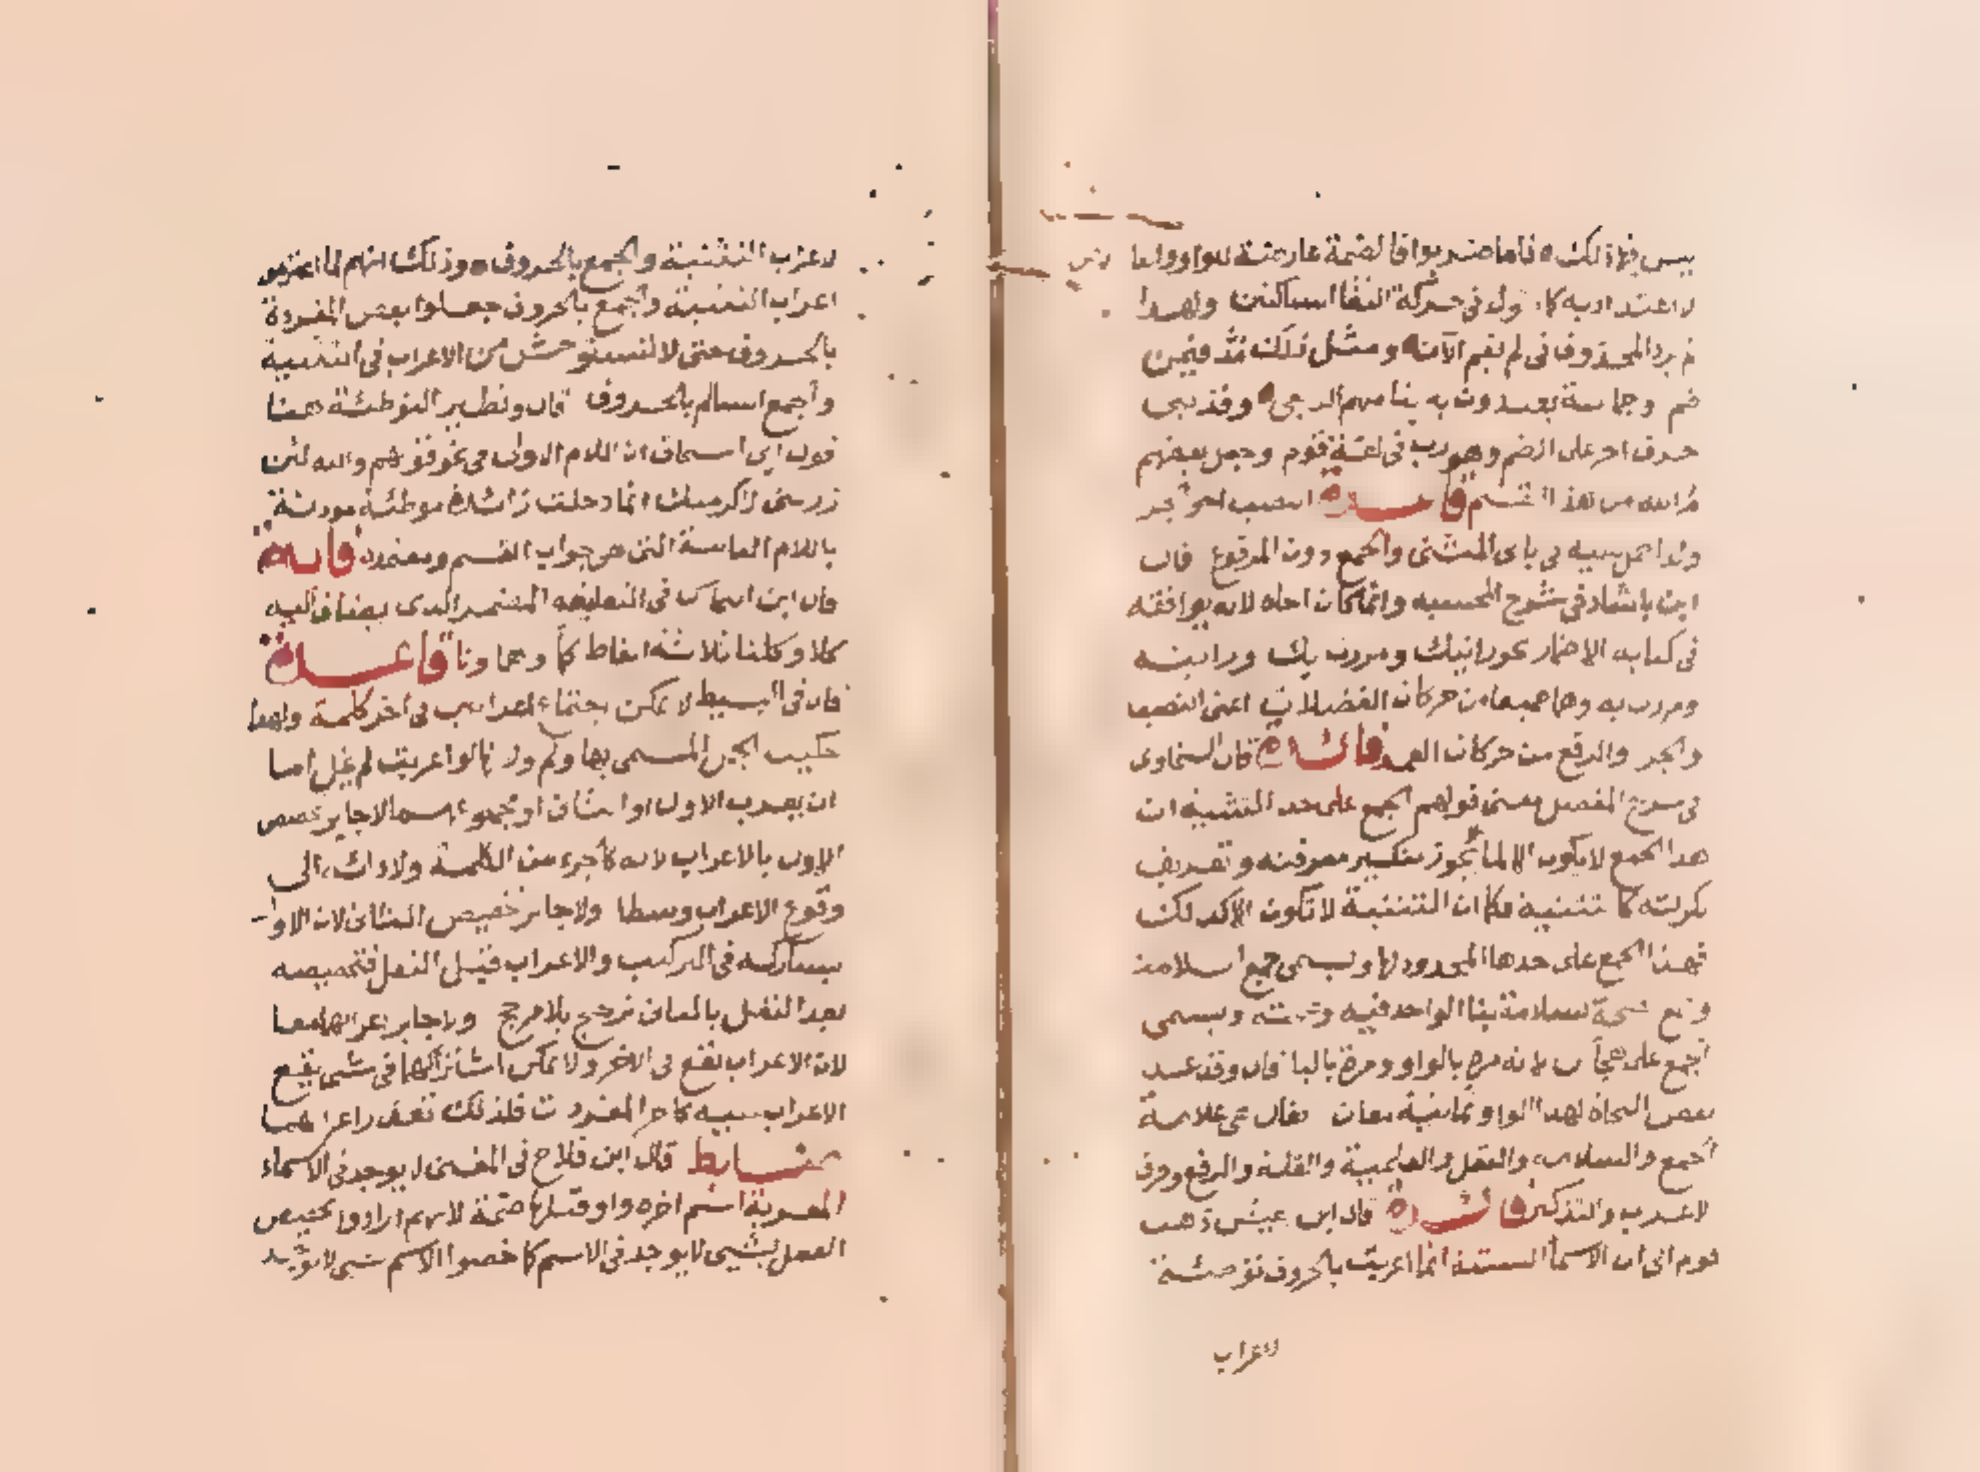 ليس فيها ذلك فاما ضربوا فالضمة عارضة للواو وانما
لا اعتداد به كما في حركة التقاء الساكنين ولهذا
لم يرد المحذوف في لم يقم الآن ومثل ذلك منذ فيمن
ضم وجماعة يعتدون به بنا منهم الربعي وقد بني
حرف اخر على الضم وهو رب في لغة قوم وجعل بعضهم
م الله من هذا القسم فائدة النصب اخو الجر
ولذا حمل عليه في باي المثنى والجمع دون المرفوع قال
ابن بابشاذ في شرح المحتسبه وانما كان اخاه لانه يوافقه
في كناية الاضمار نحو رايتك ومررت بك ورايته
ومررت به وهما جميعا من حركات الفضلات اعني النصب
والجر والرفع من حركات العمد فائدة قال السخاوي
في شرح المفصل معنى قولهم الجمع على حد التثنية ان
هذا الجمع لا يكون الا لما يجوز تنكير معرفته وتعريف
نكرته كما تثنيه فكما ان التثنية لا تكون الا كذلك
فهذا الجمع على حدها المحدود لها ويسمى جمع السلامة
وجمع صحة لسلامة بنا الواحد فيه وصحته ويسمى
الجمع على هجاين لانه مرة بالواو ومرة باليا قال وقد عد
بعض النحاة لهذا الواو ثمانية معان فقال هي علامة
الجمع والسلامة والعقل والعلمية والقلة والرفع وحرف
الاعراب والتذكير فائدة قال ابن يعيش ذهب
قوم الى ان الاسما الستة انما اعربت بالحروف توطئة
لاعراب
لاعراب التثنية والجمع بالحروف وذلك انهم لما اعتزموا
اعراب التثنية والجمع بالحروف جعلوا بعض المفردة
بالحروف حتى لا تستوحش من الاعراب في التثنية
والجمع السالم بالحروف قال ونظير التوطئة هنا
قول ابي اسحاق ان اللام الاولى في نحو قولهم والله لئن
زرتني لاكرمنك انما دخلت زائدة موطئة مؤذنة
باللام الثانية التي هي جواب القسم ومعتمده فائدة
قال ابن النحاس في التعليقه المضمر الذي يضاف اليه
كلا وكلتا ثلاثة الفاظ كما وهما ونا قاعدة
قال في البسيط لا يمكن اجتماع اعرابين في اخر كلمة ولهذا
حكيت الجمل المسمى بها ولم ولانها لو اعربت لم يخل اما
ان يعرب الاول او الثاني او مجموعهما لا جايز تخصيص
الاول بالاعراب لانه كالجزء من الكلمة ولادائه الى
وقوع الاعراب وسطا ولا جايز تخصيص الثاني لان الاول
يشاركه في التركيب والاعراب قبل النقل فتخصيصه
بعد النقل بالثاني ترجيح بلا مرجح ولا جايز اعرابهما معا
لان الاعراب يقع في الاخر ولا يمكن اشتراكهما في شي يقع
الاعراب عليه كاخر المفردات فلذلك تعذر اعرابهما
ضابط قال ابن فلاح في المغني لا يوجد في الاسماء
المعربة اسم اخره واو قبلها ضمة لانهم ارادوا تخصيص
الفعل بشي لا يوجد في الاسم كما خصوا الاسم بشي لا يوجد